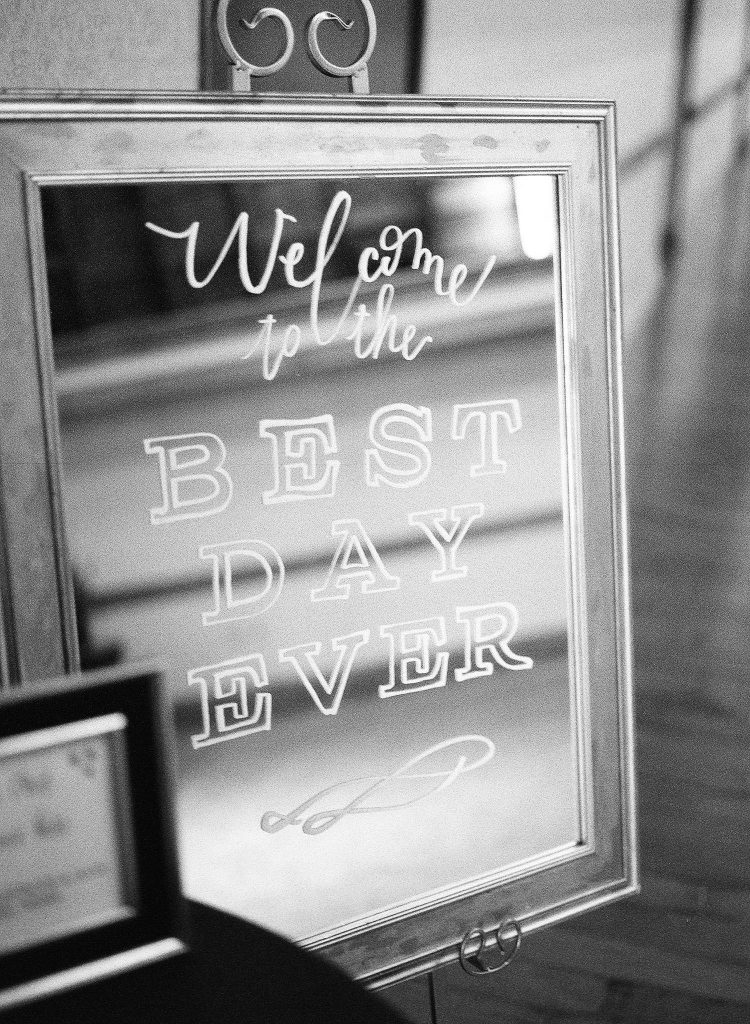 Welcome
to the
BEST
DAY
EVER